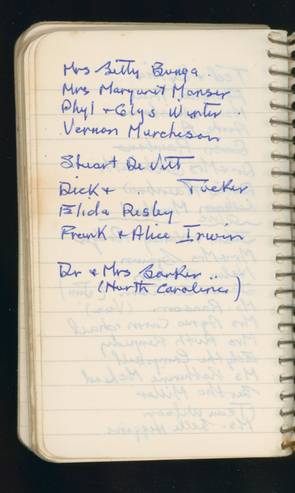 Mrs Betty Bunga.
Mrs Margurit Manser
Phyl + Glys Winter.
Vernon Murcheson
Stuart De Vitt
Dick + . Tucker
Elida Resley
Frank + Alice Irwin
Dr + Mrs Barker..
(North Carolina)